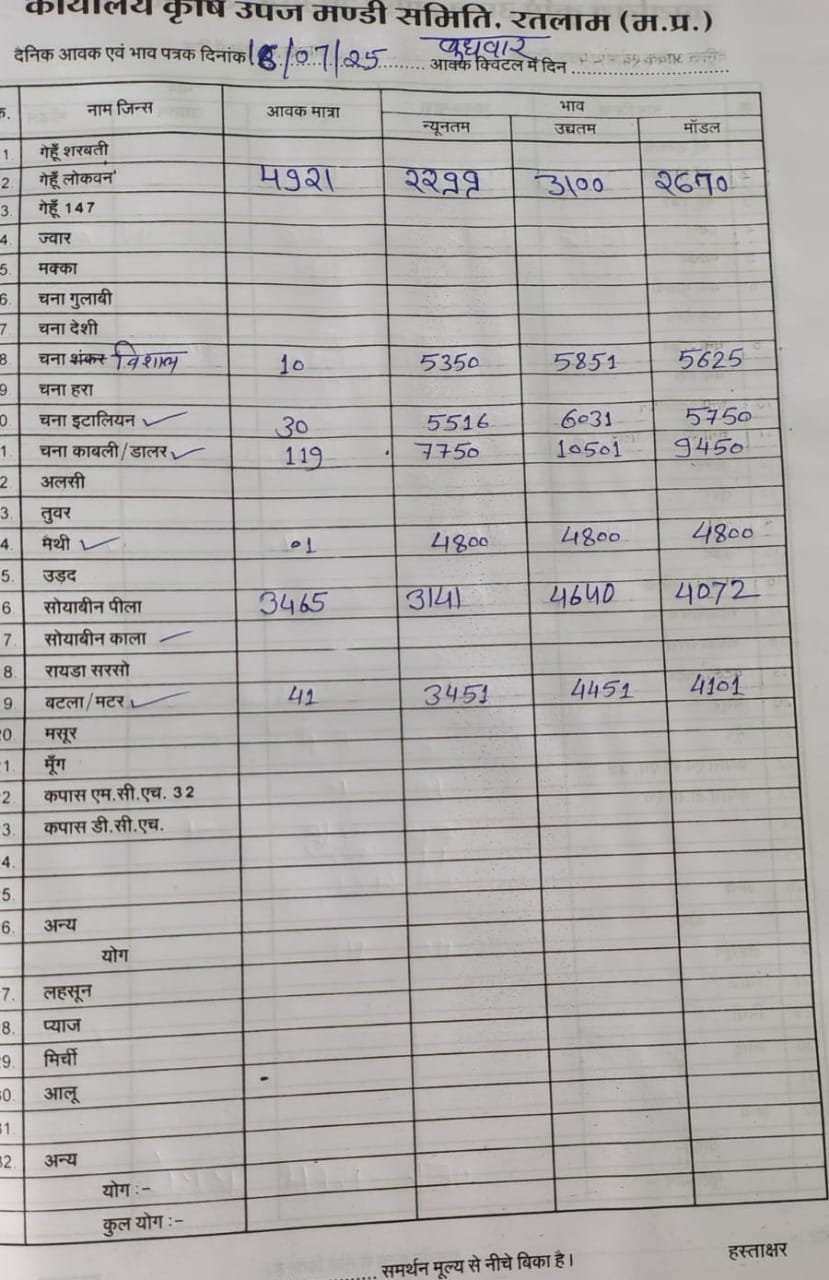 कार्यालय कृषि उपज मण्डी समिति, रतलाम (म.प्र.)
दैनिक आवक एवं भाव पत्रक दिनांक 16/07/25 बुधवार आवक क्विंटल में दिन
क. नाम जिन्स आवक मात्रा भाव
न्यूनतम उच्चतम मॉडल
1 गेहूँ शरबती
2. गेहूँ लोकवन 3100 2670
3. गेहूँ 147
4. ज्वार
5. मक्का
6. चना गुलाबी
7. चना देशी
8 चना शंकर विशाल 10 5350 5851 5625
9 चना हरा
0. चना इटालियन ✓ 30 5516 6031 5750
1. चना काबली/डालर ✓ 119 7750 10501 9450
2 अलसी
3. तुवर
4. मैथी ✓ 01 4800 4800 4800
5. उड़द
6 सोयाबीन पीला 3465 3141 4640 4072
7. सोयाबीन काला
8. रायडा सरसो
9 बटला/मटर ✓ 41 3451 4451 4101
0. मसूर
1. मूँग
2. कपास एम.सी.एच. 32
3. कपास डी.सी.एच.
4.
5.
6. अन्य
योग
7. लहसून
8. प्याज
9. मिर्ची
0. आलू
1
2. अन्य
योग :-
कुल योग :-
समर्थन मूल्य से नीचे बिका है। हस्ताक्षर